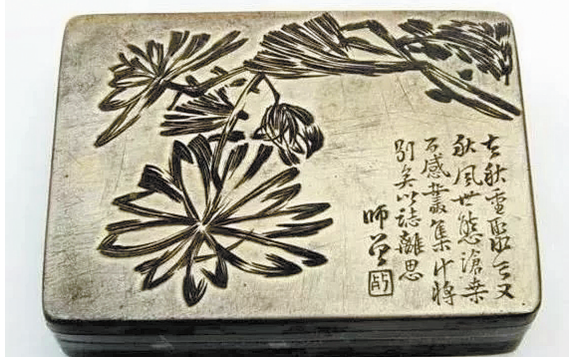 去秋雲聚今又
秋風世態滄桑
百感叢集行將
別矣以誌離思
師曾